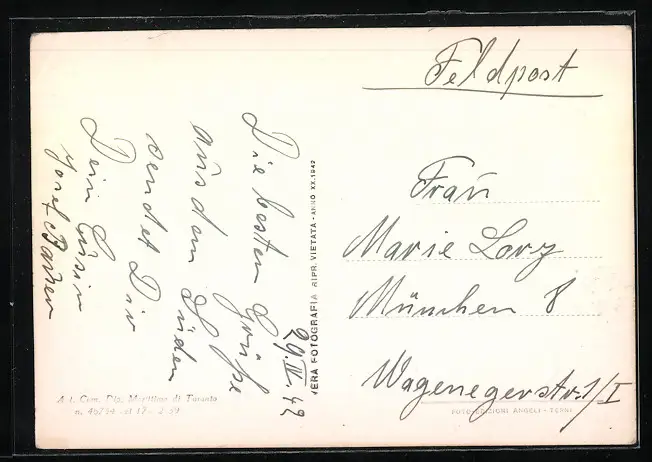 Feldpost
Frau
Marie Lory
München 8
Wagenegerstr. 1/I
29. IV. 42
Die besten Grüße
aus dem Süden
sendet Dir
Dein Cousin
Josef
VERA FOTOGRAFIA RIPR. VIETATA - ANNO XX.1942
Aut. Com. Dip. Marittimo di Taranto
FOTO-EDIZIONI ANGELI - TERNI